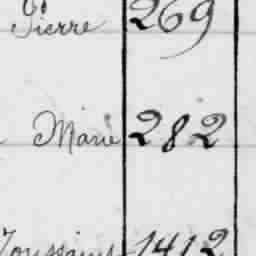 Pierre 269
Marie 282
Toussaint 1412